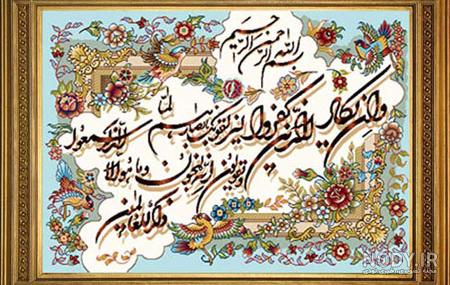 بسم الله الرحمن الرحیم
وان یکاد الذین کفروا لیزلقونک بابصارهم لما سمعوا الذکر
و یقولون انه لمجنون و ما هو الا
ذکر للعالمین
NODY.IR